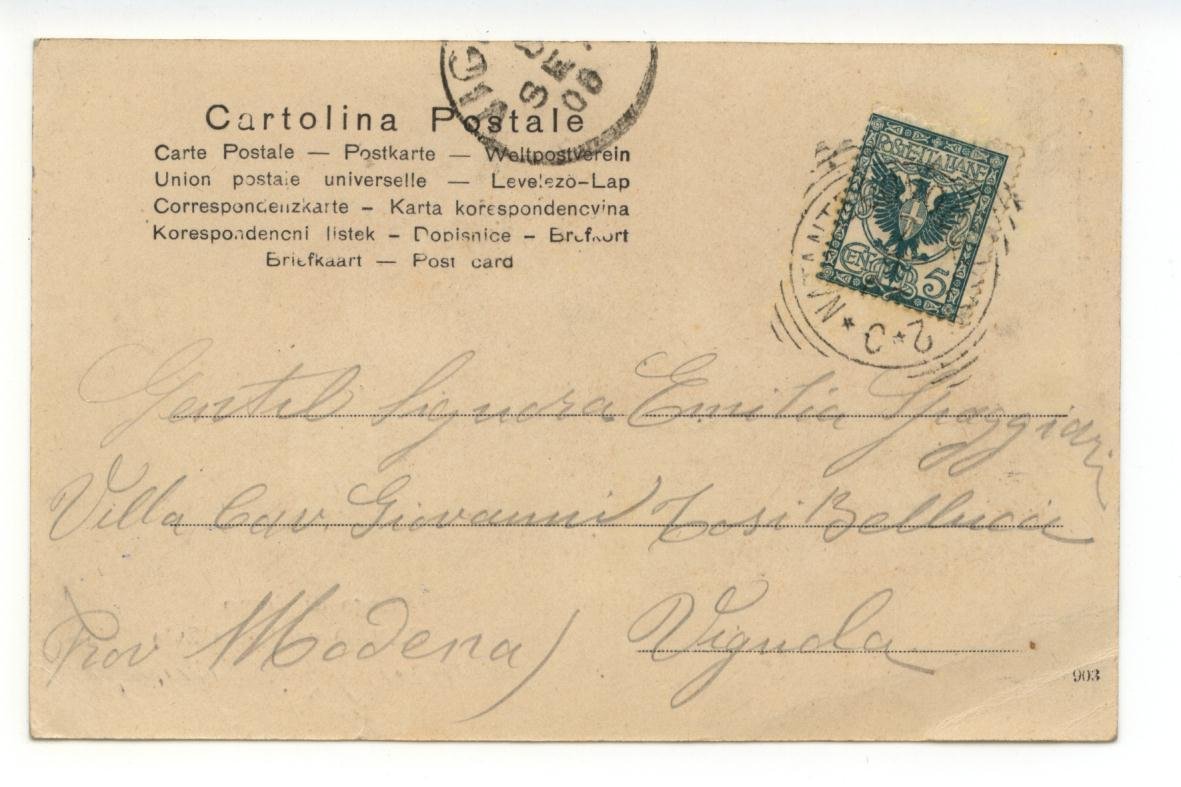 VIG
SET
06
Cartolina Postale
Carte Postale — Postkarte — Weltpostverein
Union postale universelle — Levelezö-Lap
Correspondenzkarte – Karta korespondencyina
Korespondencni listek – Dopisnice – Brefkort
Briefkaart — Post card
POSTE ITALIANE
CENT. 5
Gentil Signora Emilia Spaggiari
Villa Cav. Giovanni Tosi Bellucci
Prov Modena) Vignola
903